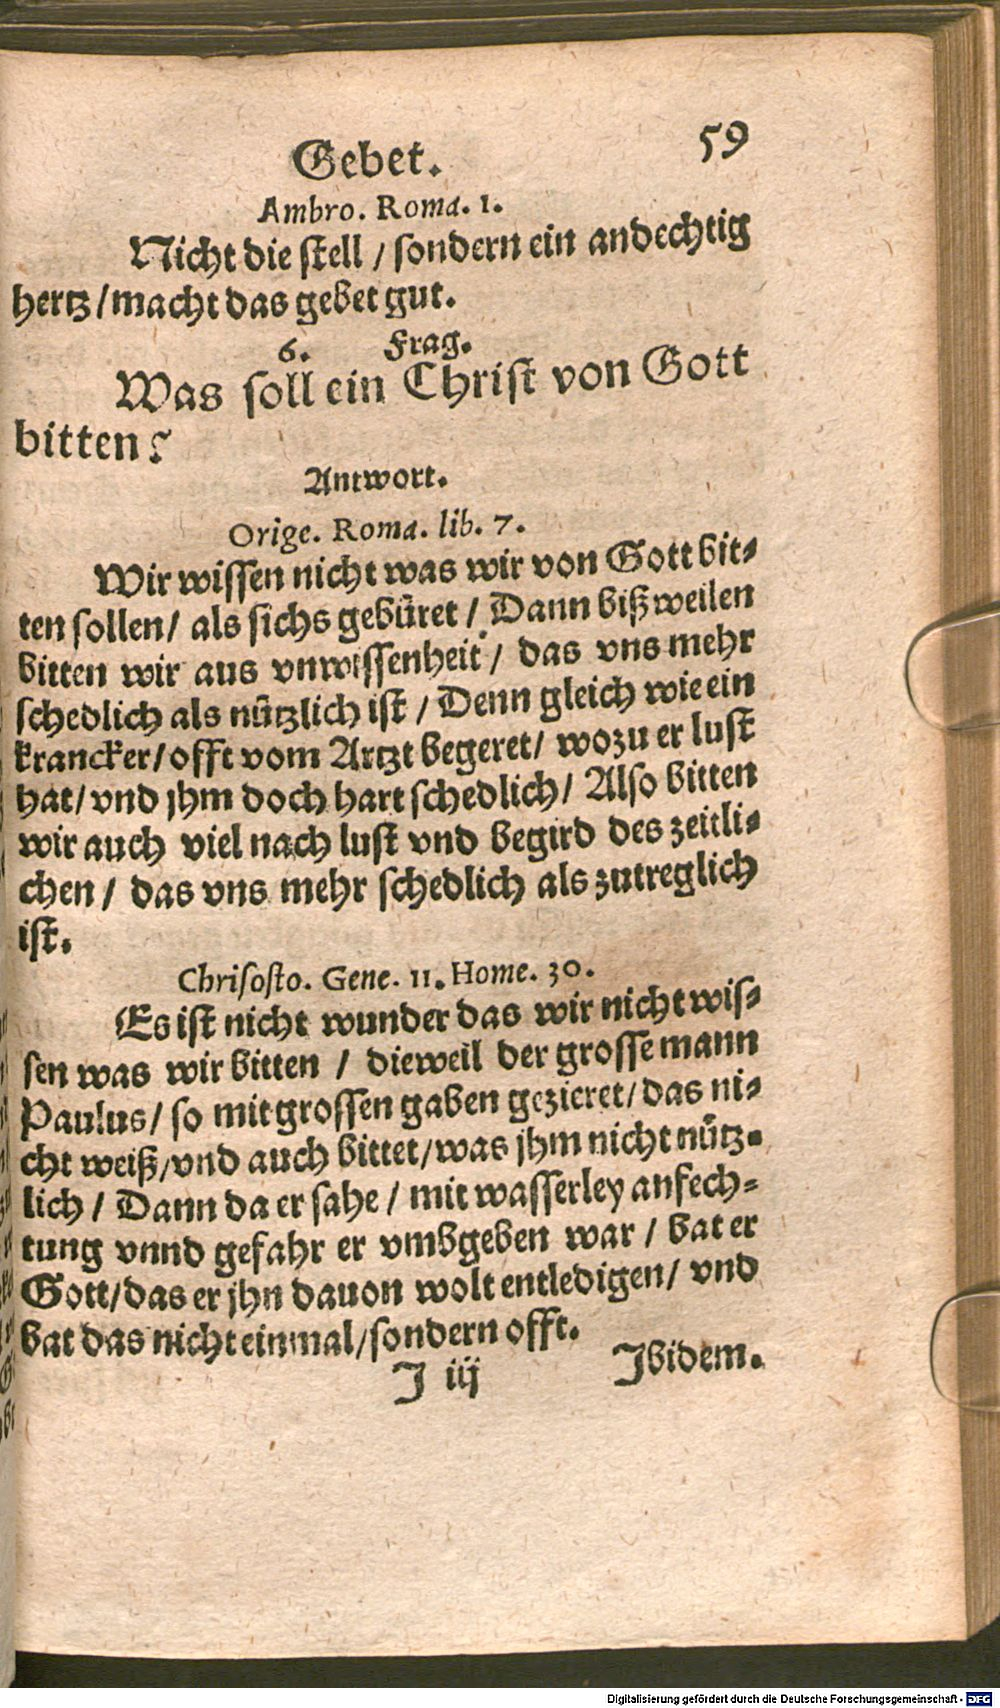 Gebet. 59
Ambro. Roma. 1.
Nicht die stell / sondern ein andechtig
hertz / macht das gebet gut.
6. Frag.
Was soll ein Christ von Gott
bitten?
Antwort.
Orige. Roma. lib. 7.
Wir wissen nicht was wir von Gott bit-
ten sollen / als sichs gebüret / Dann bißweilen
bitten wir aus vnwissenheit / das vns mehr
schedlich als nützlich ist / Denn gleich wie ein
krancker / offt vom Artzt begeret / wozu er lust
hat / vnd jhm doch hart schedlich / Also bitten
wir auch viel nach lust vnd begird des zeitli-
chen / das vns mehr schedlich als zutreglich
ist.
Chrisosto. Gene. 11. Home. 30.
Es ist nicht wunder das wir nicht wis-
sen was wir bitten / dieweil der grosse mann
Paulus / so mit grossen gaben gezieret / das ni-
cht weiß / vnd auch bittet / was jhm nicht nütz-
lich / Dann da er sahe / mit wasserley anfech-
tung vnnd gefahr er vmbgeben war / bat er
Gott / das er jhn dauon wolt entledigen / vnd
bat das nicht einmal / sondern offt.
J iij Jbidem.
Digitalisierung gefördert durch die Deutsche Forschungsgemeinschaft - DFG